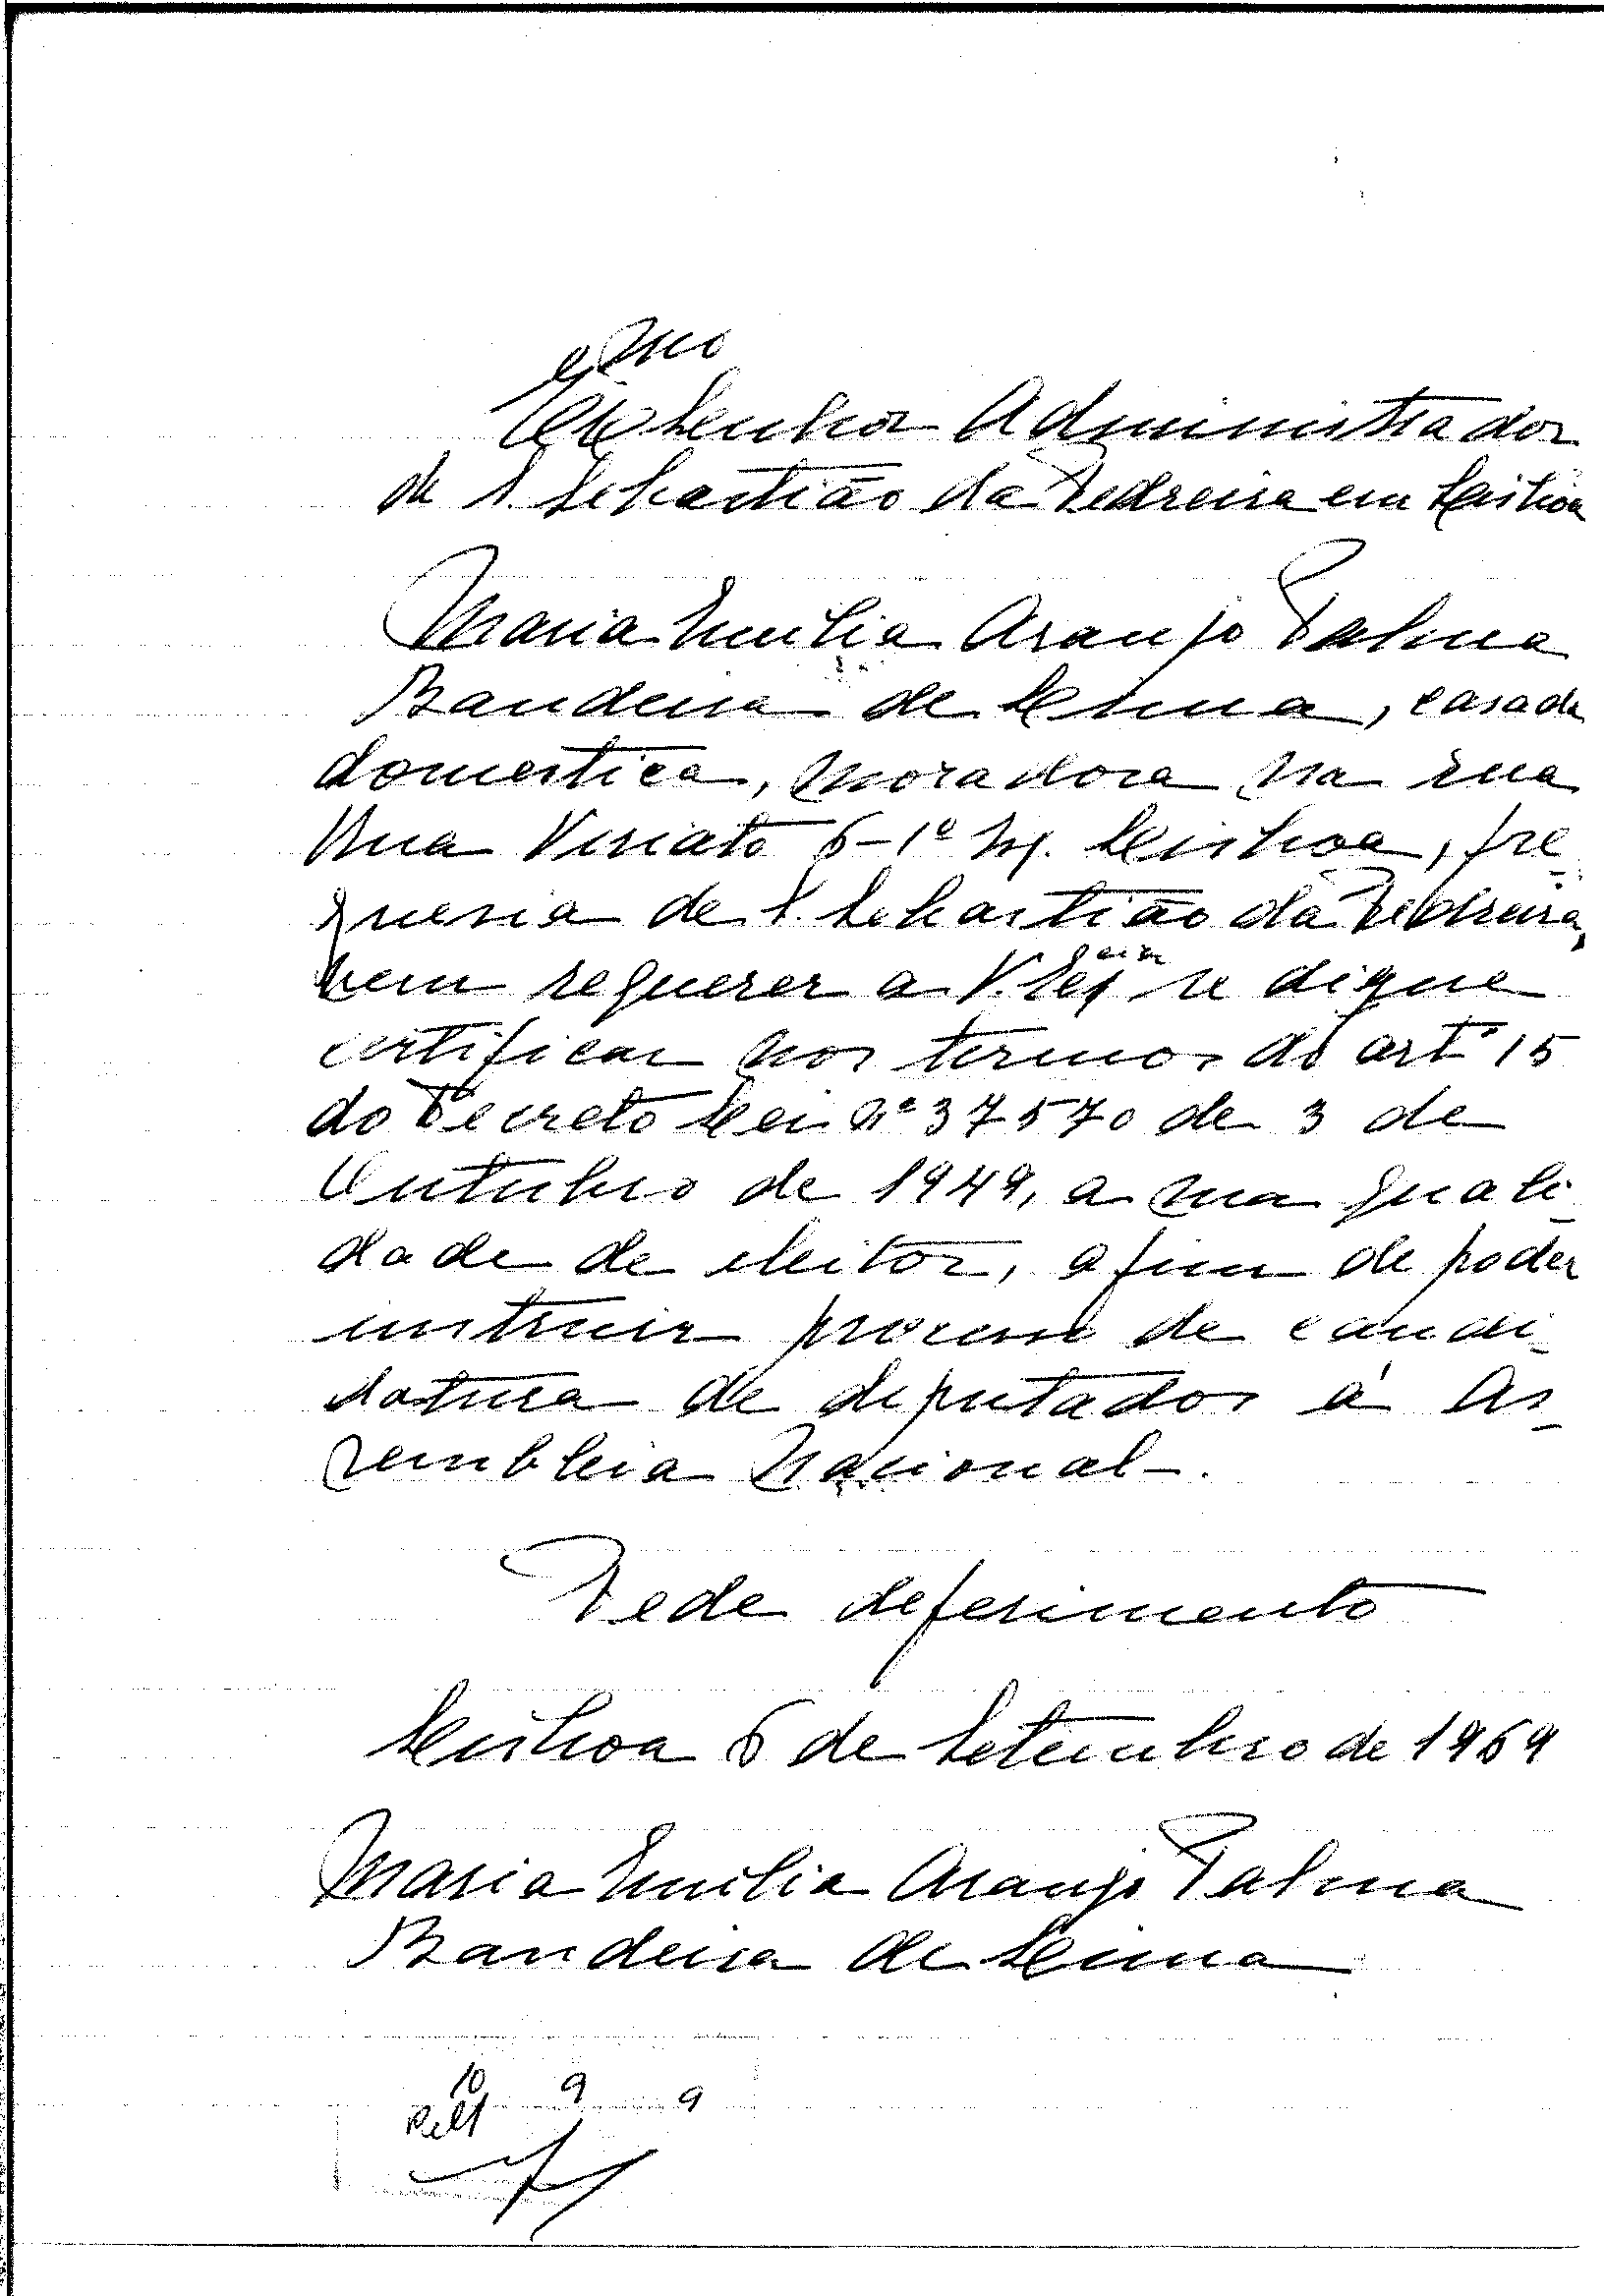 Exmo
Senhor Administrador
de S. Sebastião da Pedreira em Lisboa
Maria Emilia Araujo Palma
Bandeira de Lima, casada
domestica, moradora na rua
Rua Viriato 6-1º Esq. Lisboa, fre-
guesia de S. Sebastião da Pedreira,
vem requerer a V. Excia se digne
certificar nos termos do artº 15
do Decreto Lei nº 37570 de 3 de
Outubro de 1949, a sua quali-
dade de eleitor, afim de poder
instruir processo de candi-
datura de deputados á As-
sembleia Nacional.
Pede deferimento
Lisboa 6 de Setembro de 1969
Maria Emilia Araujo Palma
Bandeira de Lima
10 9 9